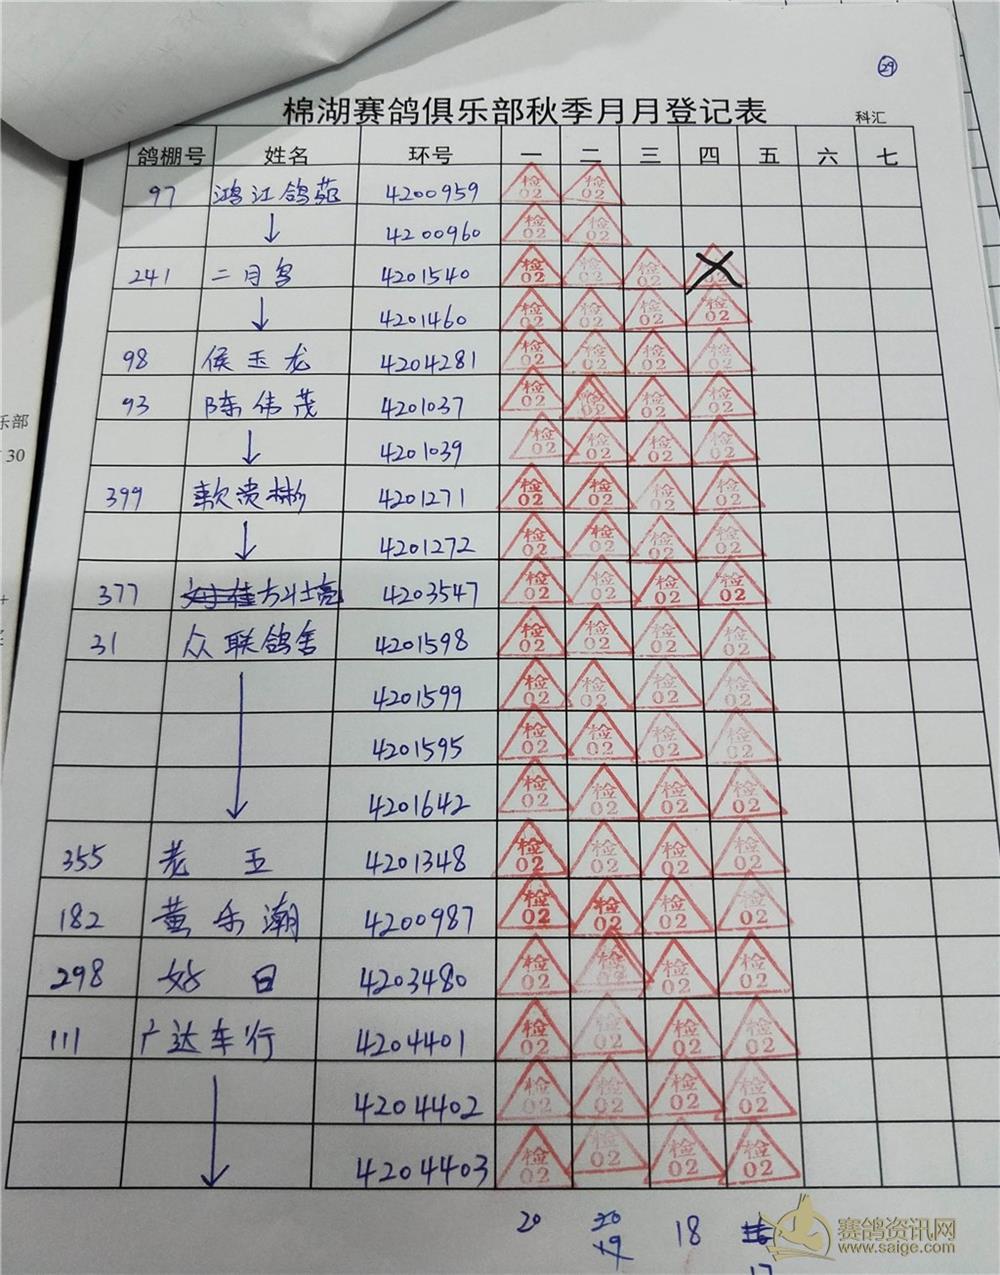 29
棉湖赛鸽俱乐部秋季月月登记表
科汇
鸽棚号 姓名 环号 一 二 三 四 五 六 七
97 鸿江鸽苑 4200959 检02 检02
↓ 4200960 检02 检02
241 二月鸟 4201540 检02 检02 检02
↓ 4201460 检02 检02 检02 检02
98 侯玉龙 4204281 检02 检02 检02 检02
93 陈伟茂 4201037 检02 检02 检02 检02
↓ 4201039 检02 检02 检02 检02
399 4201271 检02 检02 检02 检02
↓ 4201272 检02 检02 检02 检02
377 方斗士亮 4203547 检02 检02 检02 检02
31 众联鸽舍 4201598 检02 检02 检02 检02
4201599 检02 检02 检02 检02
4201595 检02 检02 检02 检02
↓ 4201642 检02 检02 检02 检02
355 老玉 4201348 检02 检02 检02 检02
182 黄乐潮 4200987 检02 检02 检02 检02
298 好日 4203480 检02 检02 检02 检02
111 广达车行 4204401 检02 检02 检02 检02
4204402 检02 检02 检02 检02
↓ 4204403 检02 检02 检02 检02
20 19 18 17
乐部
30
赛鸽资讯网
www.saige.com